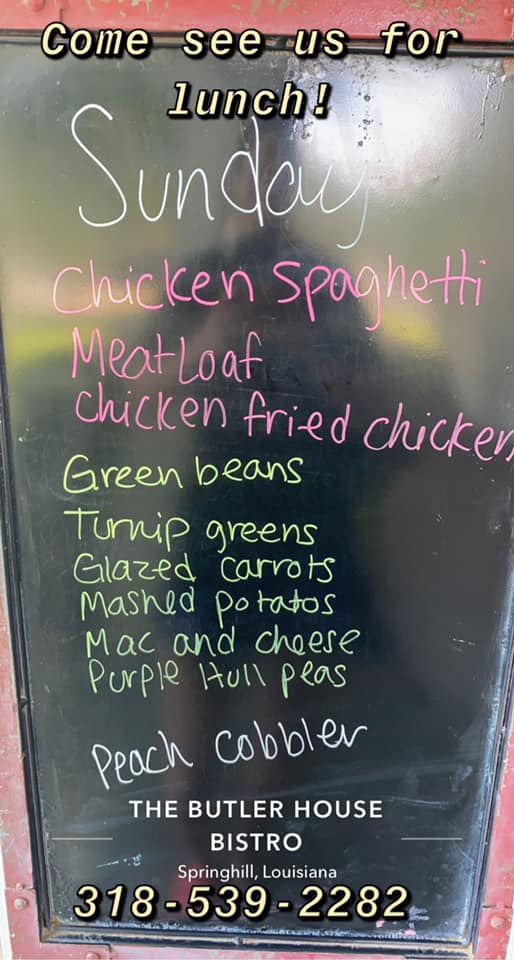 Come see us for
lunch!
Sunday
Chicken Spaghetti
Meatloaf
Chicken fried chicken
Green beans
Turnip greens
Glazed carrots
Mashed potatos
Mac and cheese
Purple Hull peas
Peach cobbler
THE BUTLER HOUSE
BISTRO
Springhill, Louisiana
318-539-2282